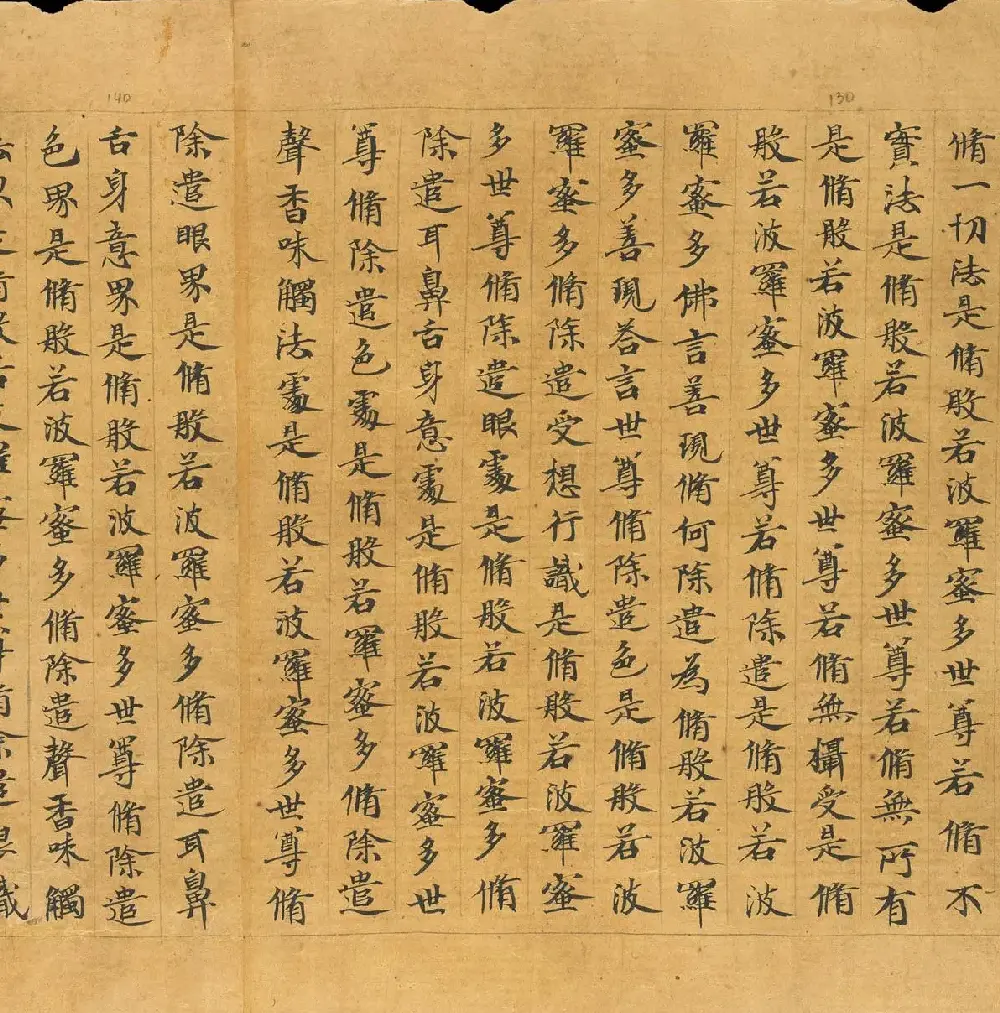 130
140
脩一切法是脩般若波羅蜜多世尊若脩不
實法是脩般若波羅蜜多世尊若脩無所有
是脩般若波羅蜜多世尊若脩無攝受是脩
般若波羅蜜多世尊若脩除遣是脩般若波
羅蜜多佛言善現脩何除遣為脩般若波羅
蜜多善現荅言世尊脩除遣色是脩般若波
羅蜜多脩除遣受想行識是脩般若波羅蜜
多世尊脩除遣眼處是脩般若波羅蜜多脩
除遣耳鼻舌身意處是脩般若波羅蜜多世
尊脩除遣色處是脩般若羅蜜多脩除遣
聲香味觸法處是脩般若波羅蜜多世尊脩
除遣眼界是脩般若波羅蜜多脩除遣耳鼻
舌身意界是脩般若波羅蜜多世尊脩除遣
色界是脩般若波羅蜜多脩除遣聲香味觸